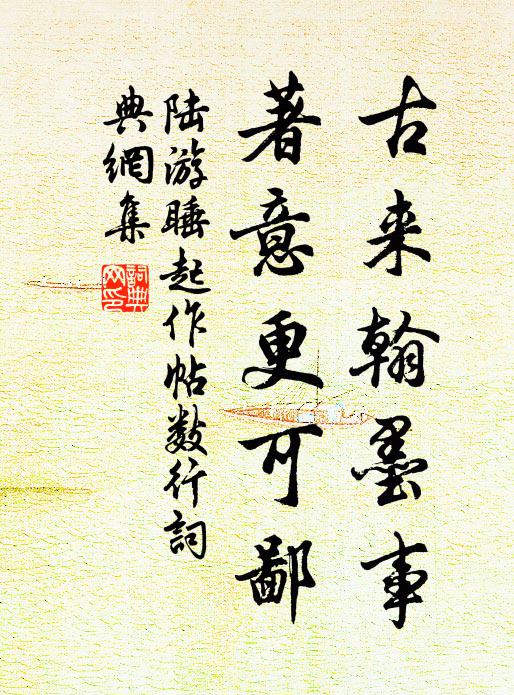 古来翰墨事
著意更可鄙
陆游睡起作帖数行词
典網集
詞典
网印